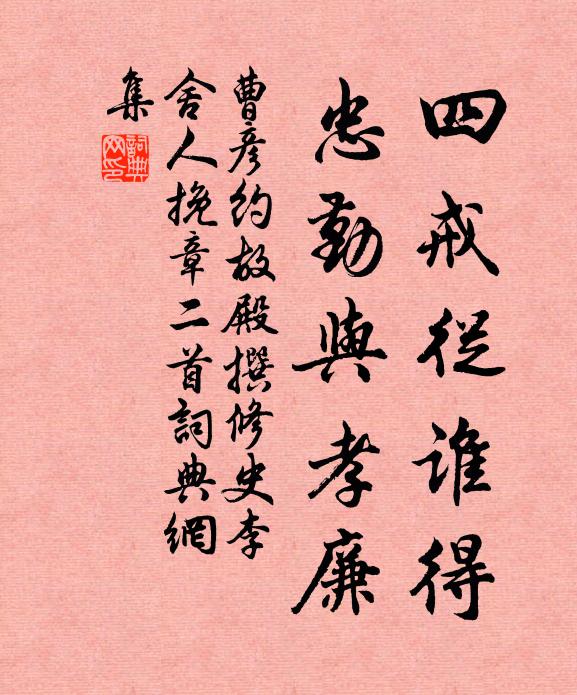 四戒從誰得
忠勤與孝廉
曹彥約故殿撰修史李
舍人挽章二首詞典網
集
詞典
网印